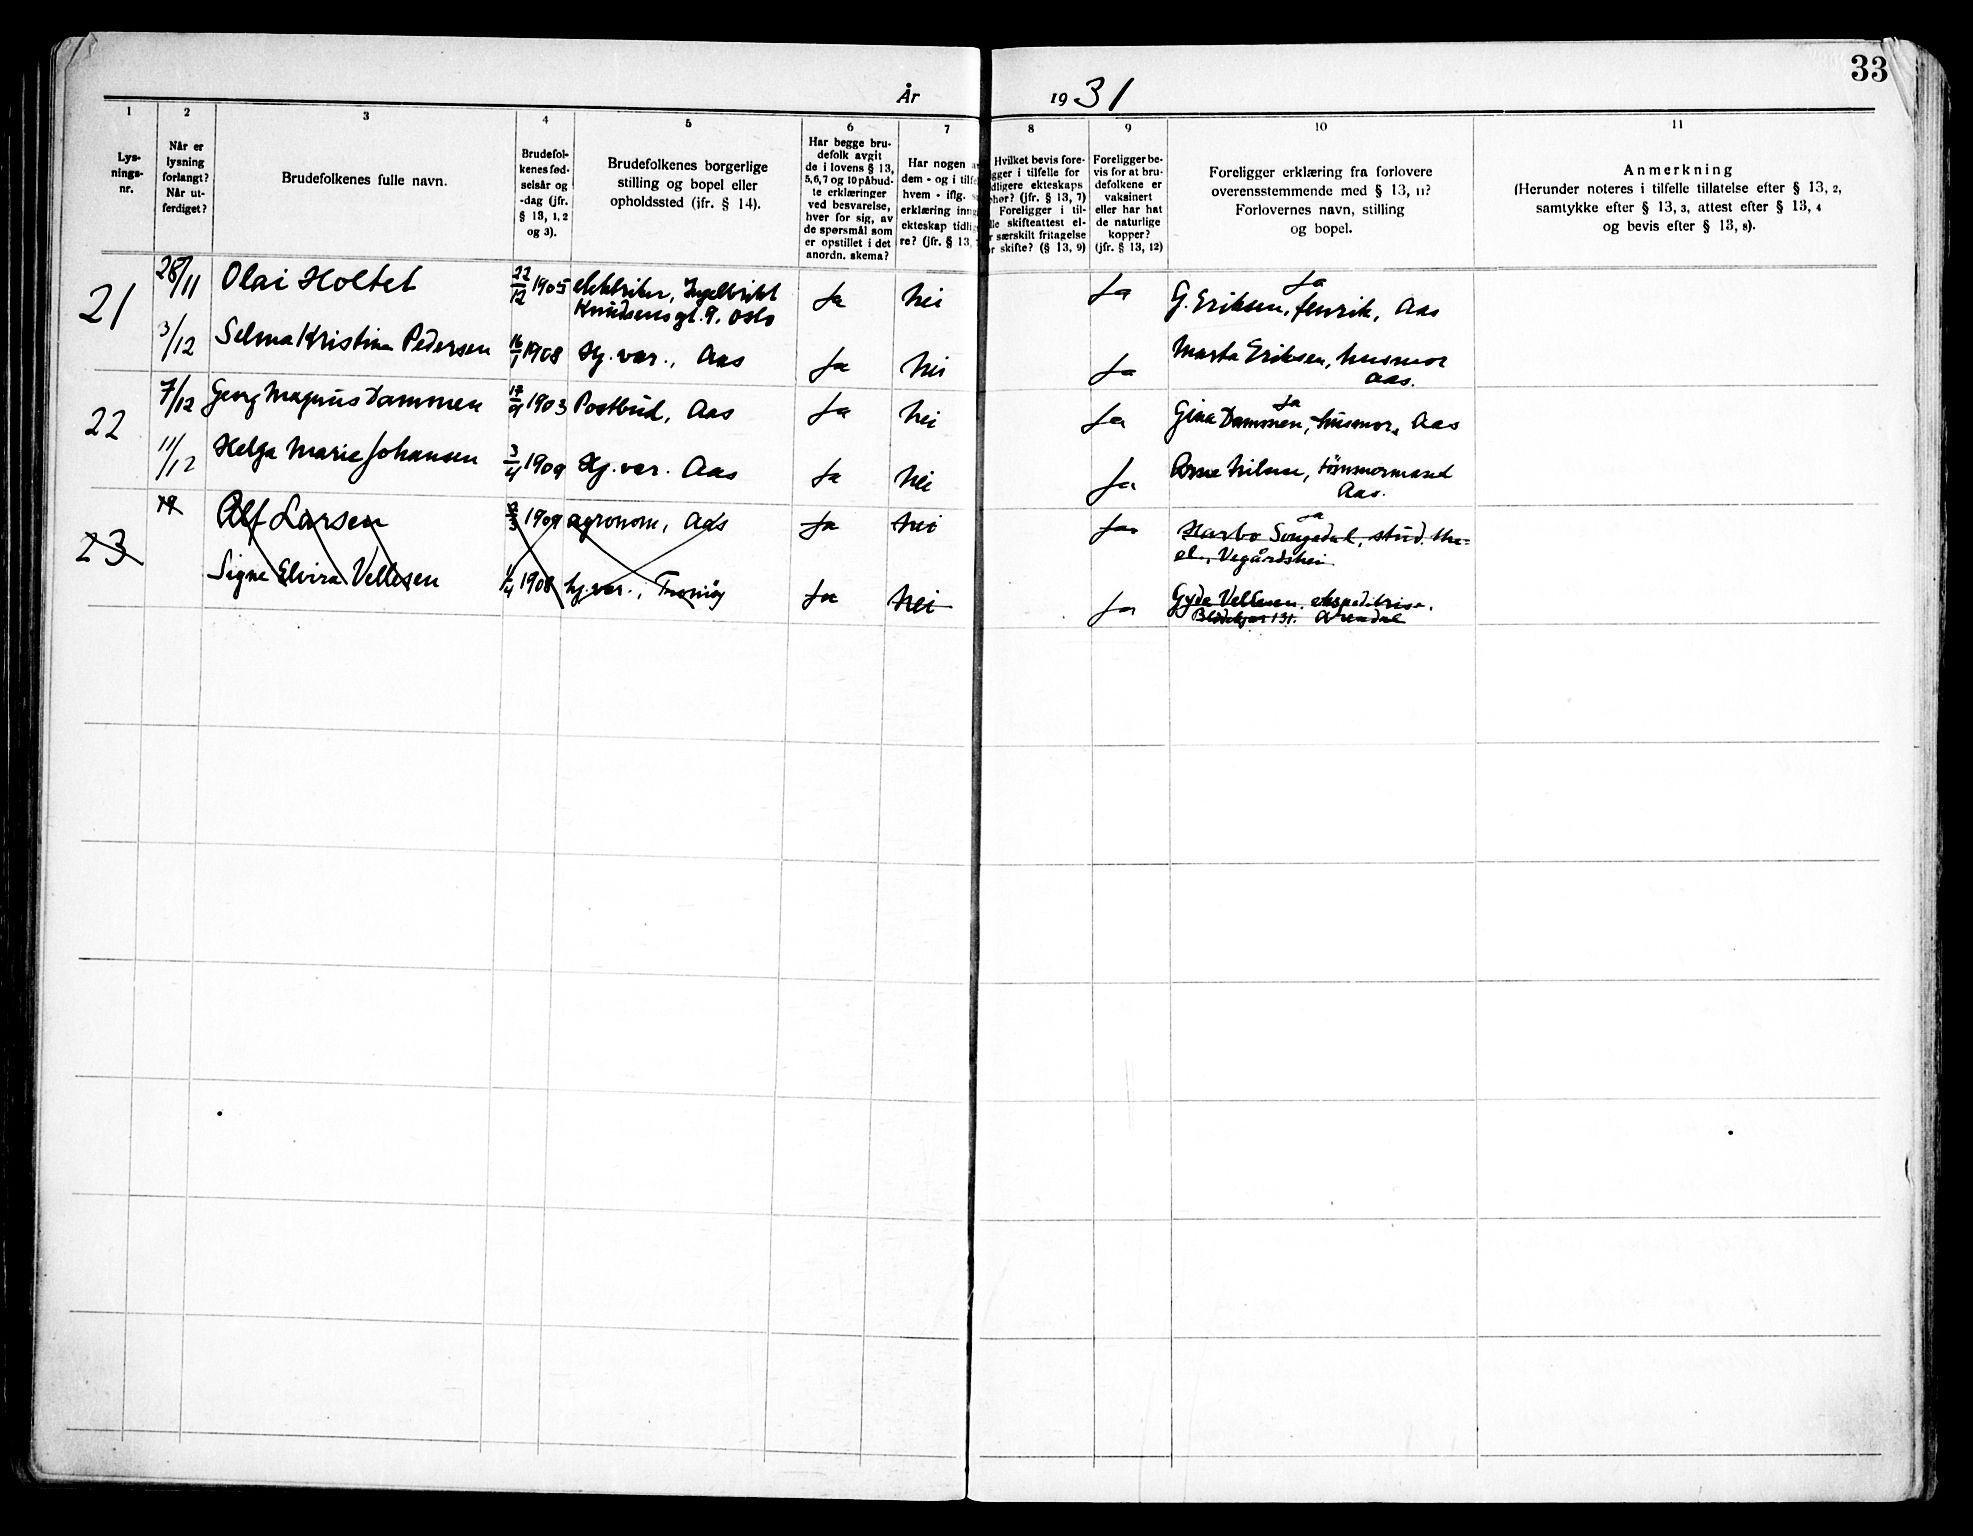 33
År 1931
1 2 3 4 5 6 7 8 9 10 11
Lys-
nings-
nr.
Når er
lysning
forlangt?
Når ut-
ferdiget?
Brudefolkenes fulle navn.
Brudefol-
kenes fød-
selsår og
-dag (jfr.
§ 13, 1, 2
og 3).
Brudefolkenes borgerlige
stilling og bopel eller
opholdssted (ifr. § 14).
Har begge bru-
defolk avgit
de i lovens § 13,
5,6,7 og 10 påbud-
te erklæringer
ved besvarelse,
hver for sig, av
de spørsmål som
er opstillet i det
anordn. skema?
Har nogen
dem - og i tilfe
hvem - iflg.
erklæring inng
ekteskap tidlig
re? (jfr. § 13,
Hvilket bevis fore-
gger i tilfelle for
dligere ekteskaps
phør? (jfr. § 13, 7)
Foreligger i til-
lle skifteattest el-
r særskilt fritagelse
or skifte? (§ 13, 9)
Foreligger be-
vis for at bru-
defolkene er
vaksinert
eller har hat
de naturlige
kopper?
(jfr. § 13, 12)
Foreligger erklæring fra forlovere
overensstemmende med § 13, 11?
Forlovernes navn, stilling
og bopel.
Anmerkning
(Herunder noteres i tilfelle tillatelse efter § 13, 2,
samtykke efter § 13, 3, attest efter § 13, 4
og bevis efter § 13, 8).
21 28/11 Olai Holtet 22/12 1905 elektriker, Ingelbrikt
Knudsens gt. 9. Oslo Ja Nei Ja Ja
G. Eriksen, fenrik, Aas
3/12 Selma Kristine Pedersen 16/1 1908 Hj. vær., Aas Ja Nei Ja Marta Eriksen, husmor
Aas.
22 7/12 Georg Magnus Dammen 17/9 1903 Postbud, Aas Ja Nei Ja Ja
Gina Dammen, husmor, Aas
11/12 Helga Marie Johansen 3/4 1909 Hj. vær. Aas Ja Nei Ja Arne Nilsen, tømmermand
Aas.
23 Alf Larsen 1909 agronom, Aas Ja Nei Ja Ja
Songedal, stud. the-
ol., Vegårdshei
Signe Elvira Vellesen 1/4 1908 hj. vær., Tromöy Ja Nei Ja Gyda Vellesen, ekspeditrise.
Blödekjær 131. Arendal